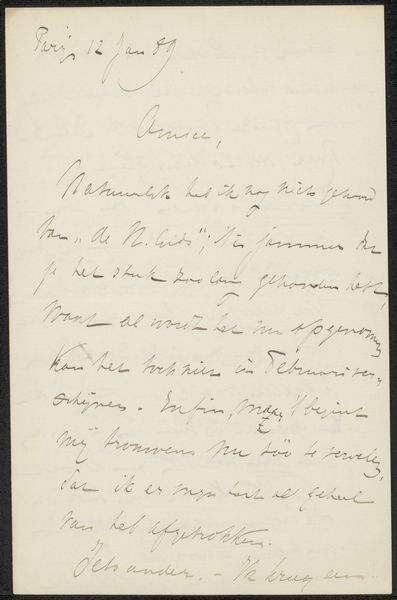 Parijs 12 Jan 89.
Amice,
Natuurlijk heb ik nog niets gehoord
van „de N. Gids"; 't is jammer dat
je het stuk zoo lang gehouden hebt,
want al wordt het nu opgenomen,
kan het toch niet in Februari ver-
schijnen. Enfin, maar 't begint
mij trouwens nu zóó te vervelen,
dat ik er mijn hart al geheel
van heb afgetrokken.
Iets anders. – Ik kreeg een